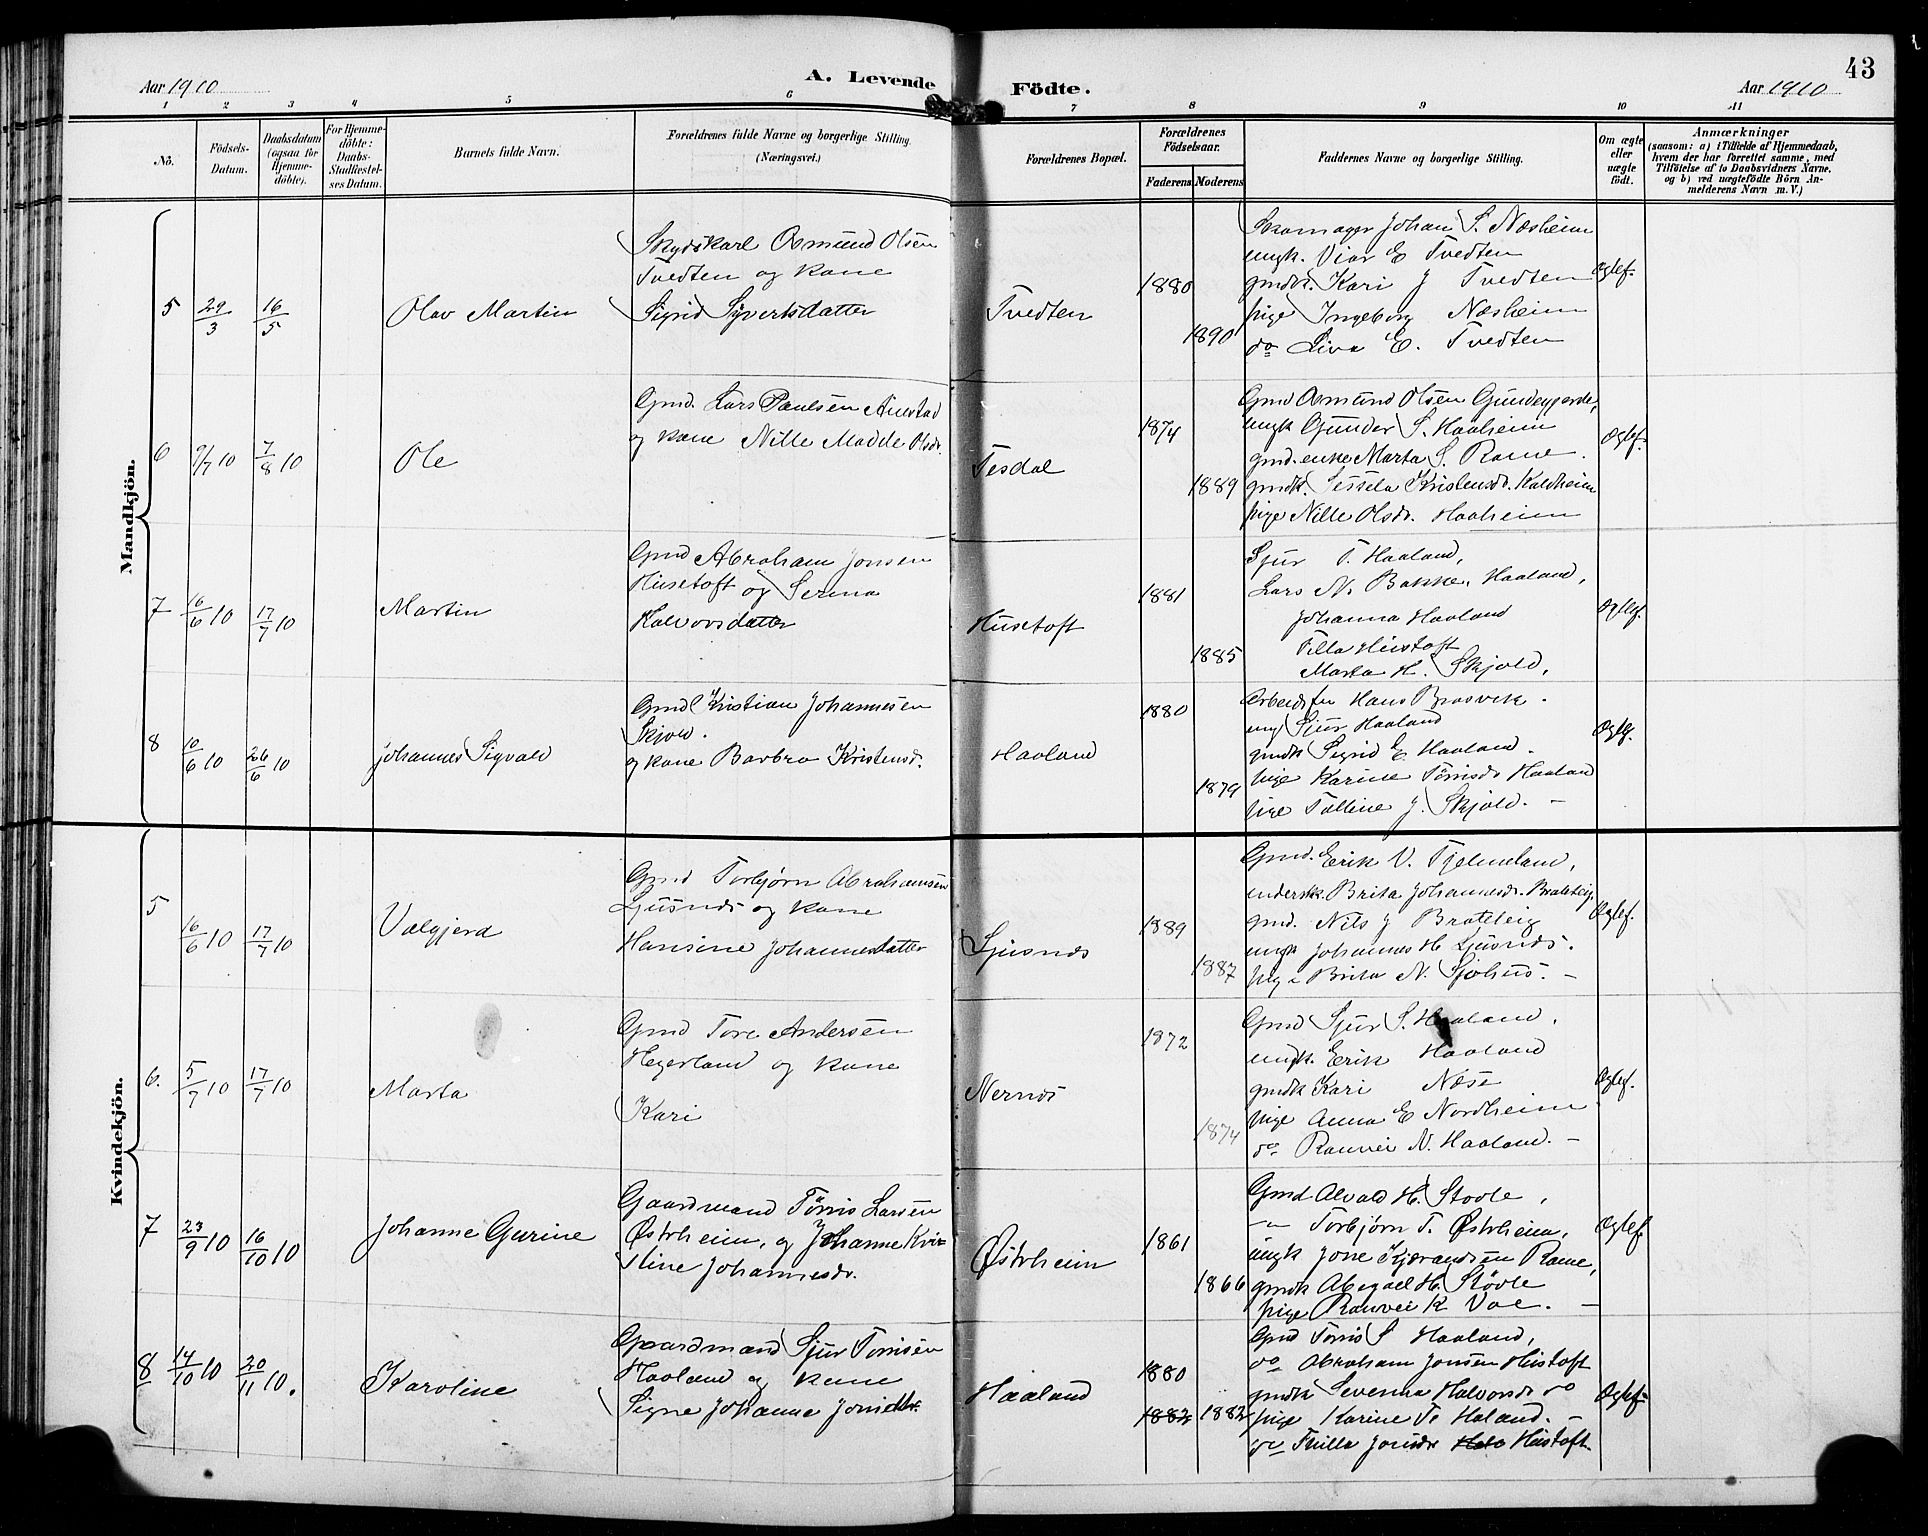 43
Aar 1910
A. Levende
Födte.
Aar 1910
1 2 3 4 5 6 7 8 9 10 11
No.
Födsels-
Datum.
Daabsdatum
(ogsaa for
Hjemme-
döbte).
For Hjemme-
döbte:
Daabs-
Stadfæstel-
ses Datum.
Barnets fulde Navn.
Forældrenes fulde Navne og borgerlige Stilling.
(Næringsvei.)
Forældrenes Bopæl.
Forældrenes
Födselsaar.
Faderens
Moderens
Faddernes Navne og borgerlige Stilling.
Om ægte
eller
uægte
födt.
Anmærkninger
(saasom: a) i Tilfælde af Hjemmedaab,
hvem der har forrettet samme, med
Tilföielse af to Daabsvidners Navne,
og b) ved uægtefödte Börn An-
melderens Navn m. V.)
Mandkjön.
5
29/3
16/5
Olav Martin
Skydskarl Osmund Olsen
Tvedten og kone
Sigrid Syvertsdatter
Tvedten
1880
1890
Skomager Johan S. Næsheim
ungk. Viar E Tvedten
gmdk. Kari J Tvedten
pige Ingeborg Næsheim
do Liva E. Tvedten
Ægtef.
6
9/7 10
7/8 10
Ole
Gmd. Lars Paulsen Austad
og kone Nille Malde Olsdr.
Tesdal
1874
1889
Gmd Osmund Olsen
ungk Gunder S. Haaheim
gmd.enke Marta S. Rame.
gmdk. Sessela Kristensdr. Kaldheim
pige Nille Olsdr. Haaheim
Ægtef.
7
16/6 10
17/7 10
Martin
Gmd Abraham Jonsen
Husetoft og Serina
Halvorsdatter
Husetoft
1881
1885
Sjur T. Haaland,
Lars N. Bakke, Haaland,
Johanna Haaland
Tilla Hustoft
Marta H. Skjold,
Ægtef.
8
10/6 10
26/6 10
Johannes Sigvald
Gmd Kristian Johannesen
Skjold.
og kone Barbro Kristensd.
Haaland
1880
1879
Arbeidsfm Hans Brosvik.
ung Sjur Haaland
gmdk Sigrid E Haaland.
pige Karine Tørrisdr Haaland
pige Talline J. Skjold. —
Ægtf.
Kvindekjön.
5
16/6 10
17/7 10
Valgjerd
Gmd Torbjørn Abrahamsen
Ljusnes og kone
Hansine Johannesdatter
Ljusnes
1889
1887
Gmd. Erik V. Tjelmeland,
Brita Johannesdr. Brateteig,
gmd. Nils J Brateteig
ungk Johannes H Ljusnes.
pige Brita N. Sjøhus. —
Ægtef.
6.
5/7 10
17/7 10
Marta
Gmd Tore Andersen
Hegerland og kone
Kari
Nernes
1872
1874
Gmd Sjur S. Haaland,
ungk. Erik Haaland
gmdk Kari Næse
pige Anna E Nordheim
do Ranvei N. Haaland. —
Ægtef.
7
23/9 10
16/10 10
Johanne Gurine
Gaardmand Tørris Larsen
Østrheim, og Johanne Kri-
stine Johannesdr.
Østrheim
1861
1866
Gmd Alvald H. Støvle,
— Torbjørn T. Østrheim,
ungk Jone Kjærandsen Rame,
gmdk Abegael H. Støvle
pige Ranvei K Vae. —
Ægtef
8
14/10 10
20/11 10.
Karoline
Gaardmand Sjur Tørrisen
Haaland og kone
Signe Johanne Jonsdtr.
Haaland
1880
1882 1882
Gmd Tørris S Haaland,
do Abraham Jonsen Hustoft
gmdk Severina Halvorsdr do
pige Karine T. Haland. —
do Thilla Jonsdr Hala Hustoft
Ægtef.